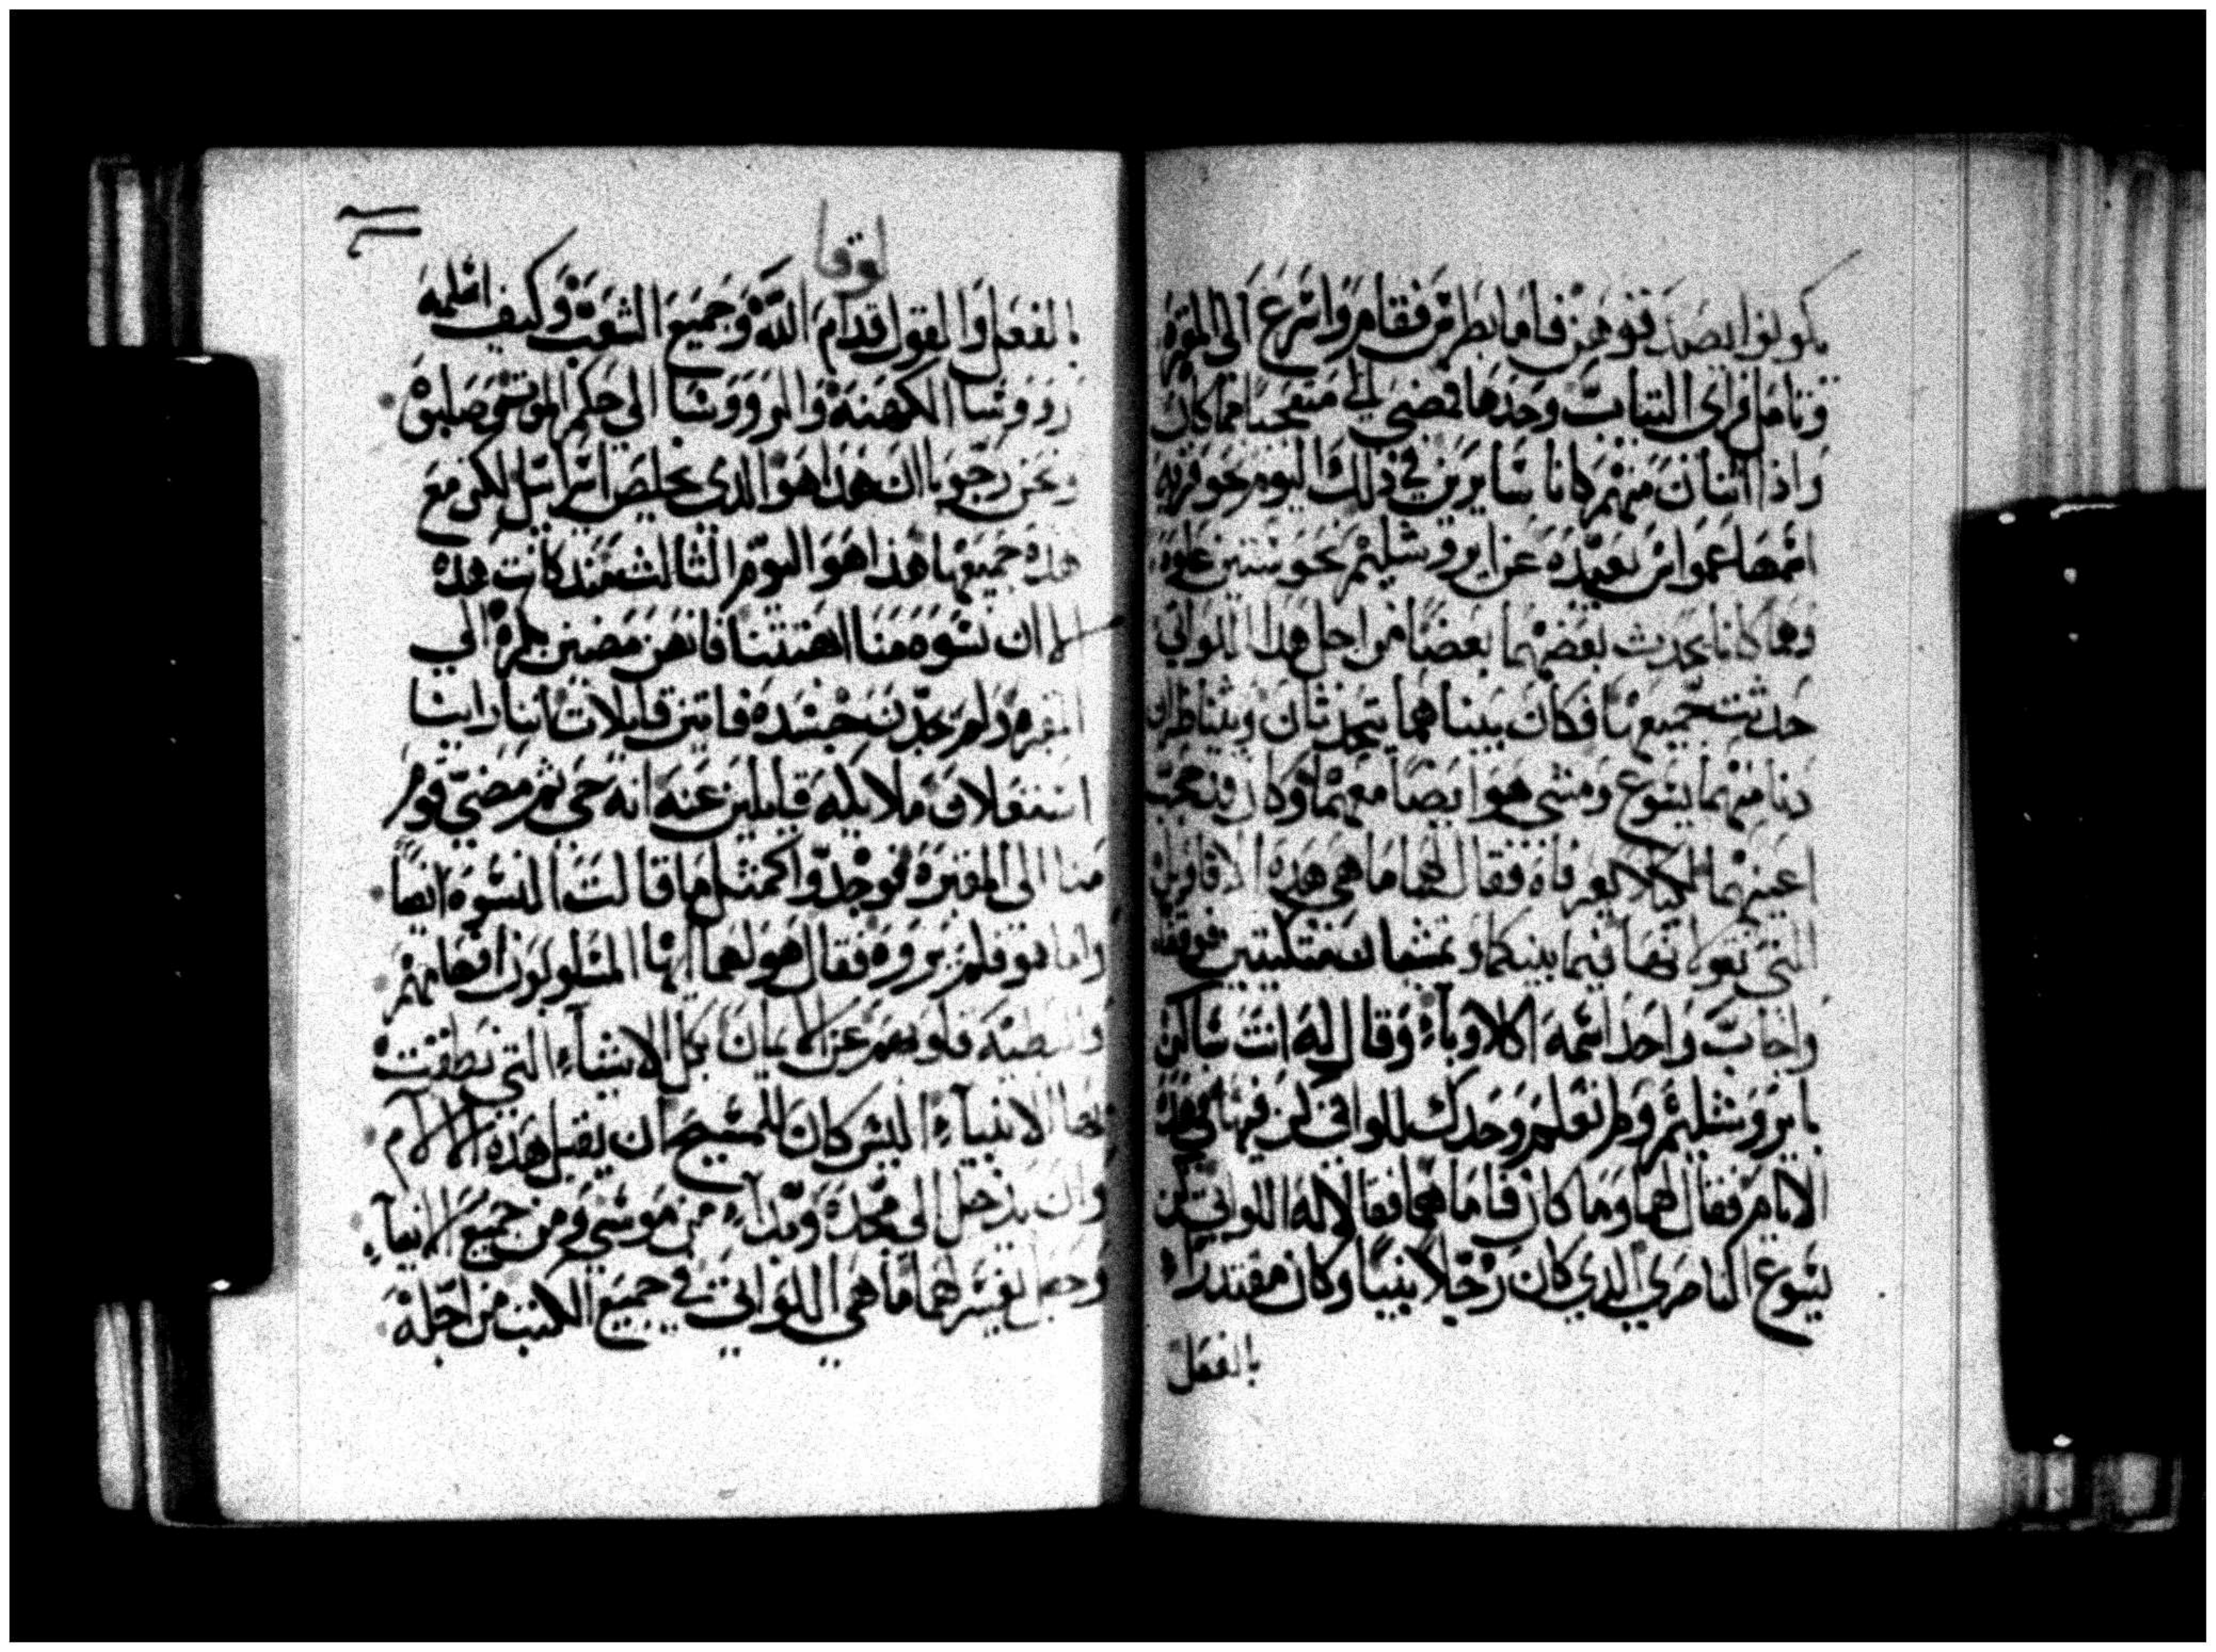 يكونوا يصدقوهن فاما بطرس فقام واسرع الى المقبره
وتامل فراى الثياب وحدها فمضى الي متعجبا مما كان
واذا اثنان منهم كانا سايرين في ذلك اليوم نحو قريه
اسمها عمواس بعيده عن ايروشليم نحو ستين غلوه
وهما كانا يحدث بعضهما بعضا من اجل هذا اللواتي
حدثت جميعها فكان بينما هما يتحدثان ويتناظران
دنا منهما يسوع ومشى هو ايضا معهما وكان
اعينهما لكيلا يعرفاه فقال لهما ما هي هذه الاقاويل
التي تقولانها فيما بينكما وتمشيان مكتئبين
واجاب واحد اسمه اكلاوباء وقال له انت ساكن
بايروشليم ولم تعلم وحدك اللواتي كن فيها في هذه
الايام فقال لهما وما كان فاما هما فقالا له اللواتي كن
يسوع الناصري الذي كان رجلا نبيا وكان مقتدرا
بالفعل
لوقا
بالفعل والقول قدام الله وجميع الشعب وكيف اسلمه
روؤسا الكهنة والروؤسا الى حكم الموت وصلبوه
ونحن رجونا ان هذا هو الذي يخلص اسراييل لكن مع
هذه جميعها هذا هو اليوم الثالث منذ كانت هذه
الا ان نسوه منا اهتتنا فانهن مضين بكره الي
المقبره ولم يجدن جسده فاتين قايلات اننا راينا
استعلاف ملايكه قايلين عنه انه حي ثم مضى قوم
منا الى المقبره فوجدوا كمثل ما قالت النسوه ايضا
واما هو فلم يروه فقال هو لهما ايها المسلوبون افهامهم
والبطيه قلوبهم عن الايمان بكل الاشياء التي نطقت
بها الانبياء اليس كان للمسيح ان يقبل هذه الالام
وان يدخل الى مجده وبداء من موسى ومن جميع الانبياء
وجعل يفسر لهما ما هي اللواتي في جميع الكتب من اجله